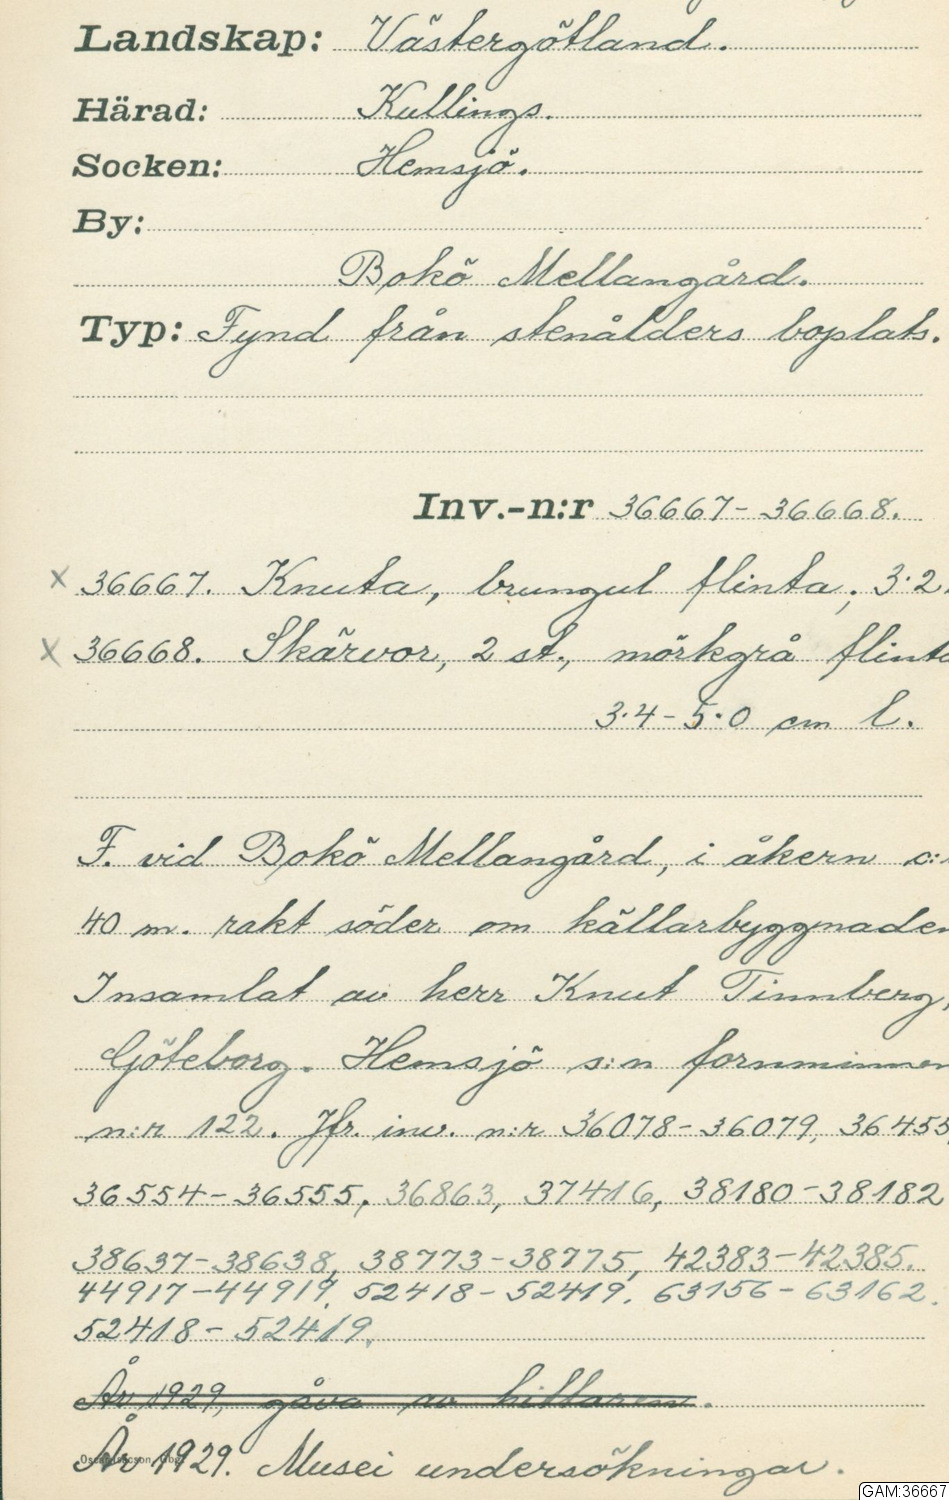 Landskap: Västergötland.
Härad: Kullings.
Socken: Hemsjö.
By:
Bokö Mellangård.
Typ: Fynd från stenålders boplats.
Inv.-n:r 36667-36668.
x 36667. Knuta, brungul flinta, 3·2
x 36668. Skärvor, 2 st., mörkgrå flinta
3·4-5·0 cm l.
F. vid Bokö Mellangård, i åkern c:
40 m. rakt söder om källarbyggnaden
Insamlat av herr Knut Tinnberg,
Göteborg. Hemsjö s:n fornminnen
n:r 122. Jfr. inv. n:r 36078-36079, 36455,
36554-36555, 36863, 37416, 38180-38182
38637-38638, 38773-38775, 42383-42385.
44917-44919, 52418-52419. 63156-63162.
52418-52419.
År 1929, gåva av hittaren.
År 1929. Musei undersökningar.
GAM:36667